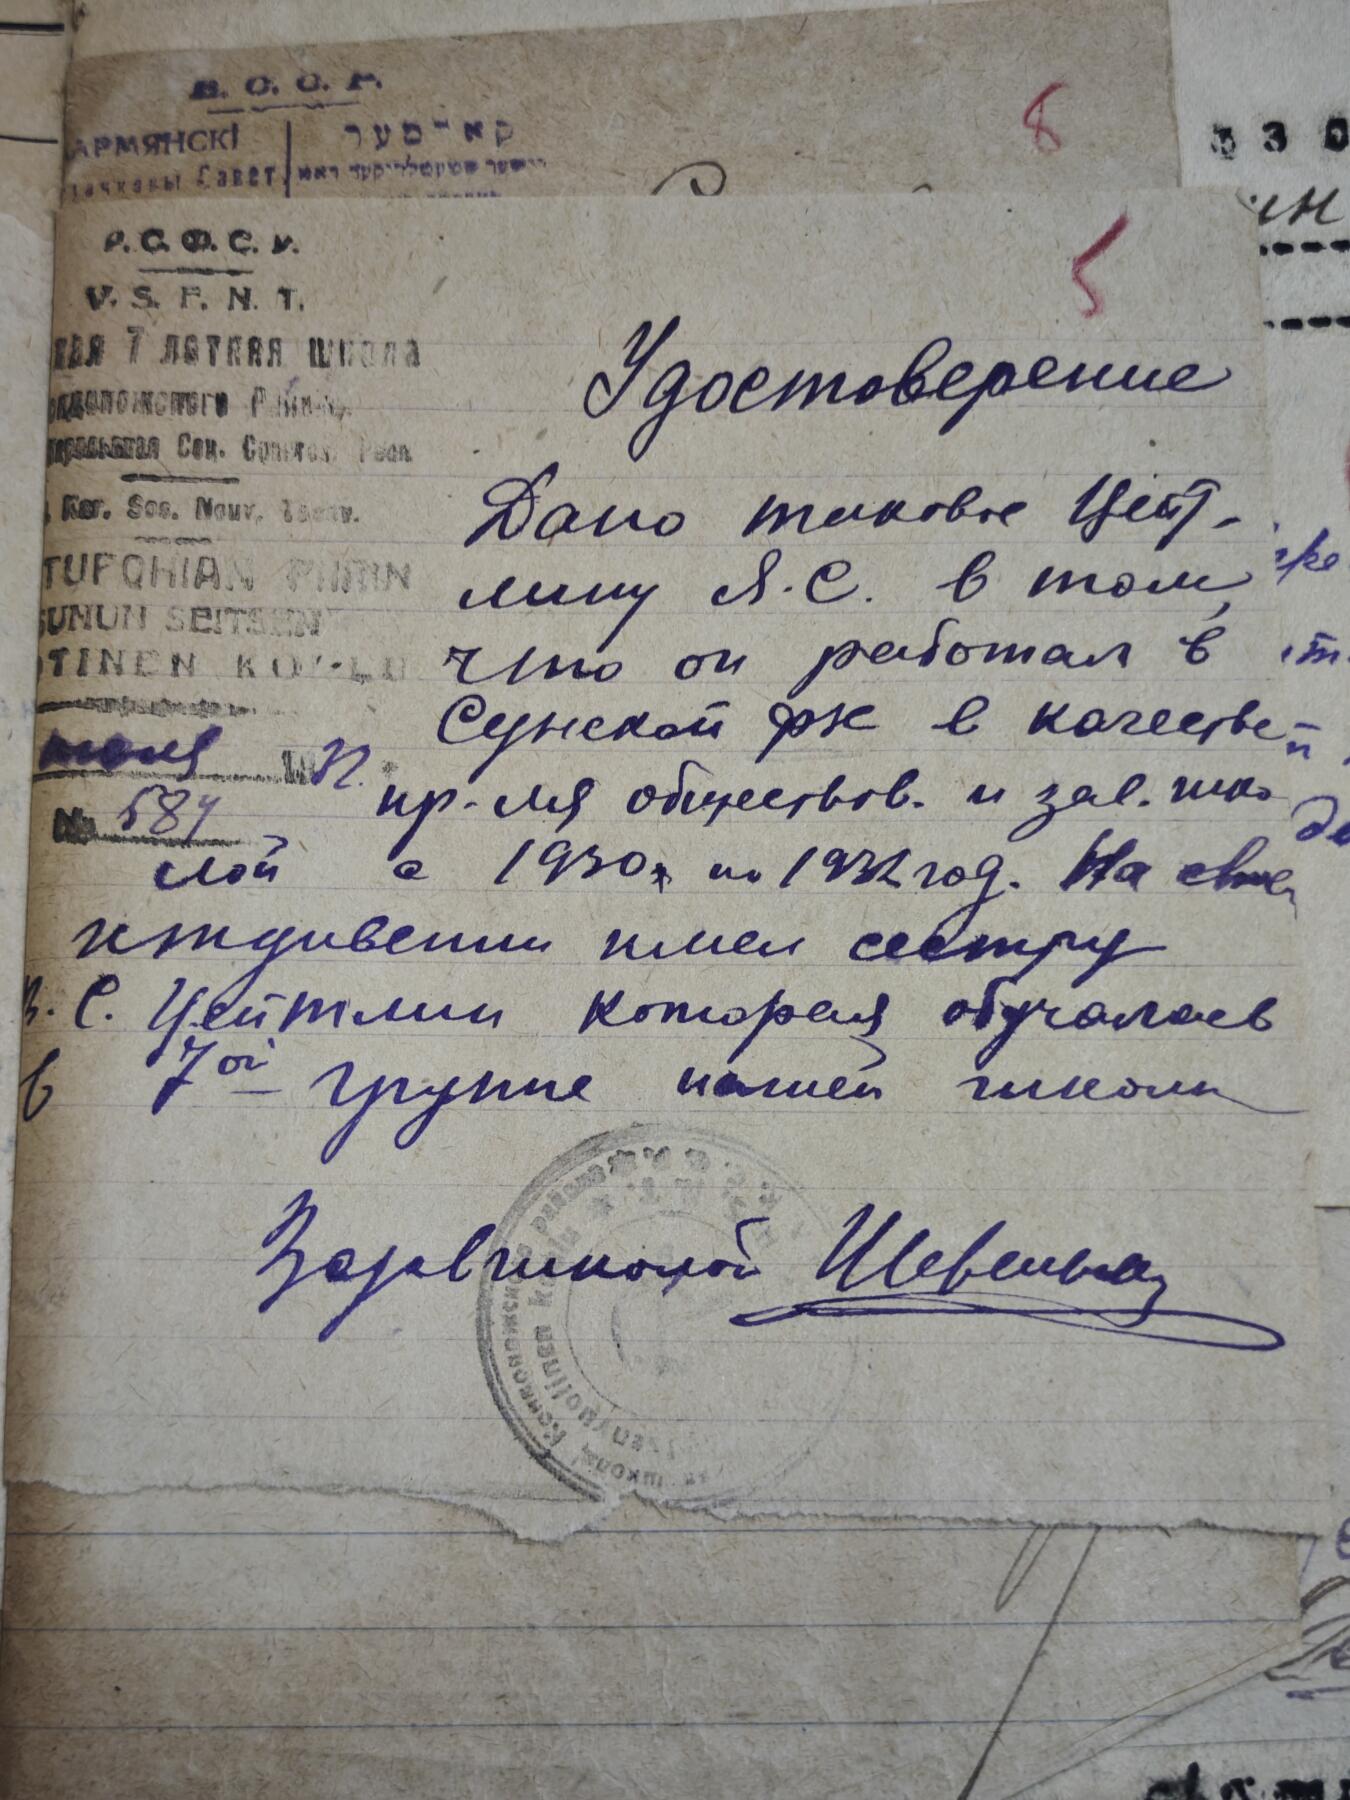 Б. С. С. Р.
АРМЯНСКІ
Савет
קאָ־טער
8
330
ин
5
Р.С.Ф.С.Р.
V. S. F. N. T.
кая 7 летняя школа
ондопожского Района,
Сов. Соц. Респ.
Kar. Sos. Neuv.
TUFOHIAN PIIRIN
SUNUN SEITSEN
OTINEN KOULU
июня 32.
№ 584
Удостоверение
Дано таковое Цейт-
лину Я. С. в том,
что он работал в
Сунской ФК в качестве
пр-ля обществов. и зав. шко
лой с 1930г. по 1932 год. На своем
иждивении имел сестру
С. Цейтлин которая обучалась
в 7ой группе нашей школы
Завшколой
Кондопожского района
школа